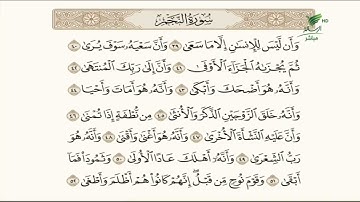 سُورَةُ النَّجْمِ
وَأَن لَّيْسَ لِلْإِنسَٰنِ إِلَّا مَا سَعَىٰ ٣٩ وَأَنَّ سَعْيَهُۥ سَوْفَ يُرَىٰ ٤٠
ثُمَّ يُجْزَىٰهُ الْجَزَآءَ الْأَوْفَىٰ ٤١ وَأَنَّ إِلَىٰ رَبِّكَ الْمُنتَهَىٰ ٤٢
وَأَنَّهُۥ هُوَ أَضْحَكَ وَأَبْكَىٰ ٤٣ وَأَنَّهُۥ هُوَ أَمَاتَ وَأَحْيَا ٤٤
وَأَنَّهُۥ خَلَقَ الزَّوْجَيْنِ الذَّكَرَ وَالْأُنثَىٰ ٤٥ مِن نُّطْفَةٍ إِذَا تُمْنَىٰ ٤٦
وَأَنَّ عَلَيْهِ النَّشْأَةَ الْأُخْرَىٰ ٤٧ وَأَنَّهُۥ هُوَ أَغْنَىٰ وَأَقْنَىٰ ٤٨ وَأَنَّهُۥ هُوَ
رَبُّ الشِّعْرَىٰ ٤٩ وَأَنَّهُۥٓ أَهْلَكَ عَادًا الْأُولَىٰ ٥٠ وَثَمُودَا۟ فَمَآ
أَبْقَىٰ ٥١ وَقَوْمَ نُوحٍ مِّن قَبْلُ إِنَّهُمْ كَانُوا۟ هُمْ أَظْلَمَ وَأَطْغَىٰ ٥٢
HD
مباشر